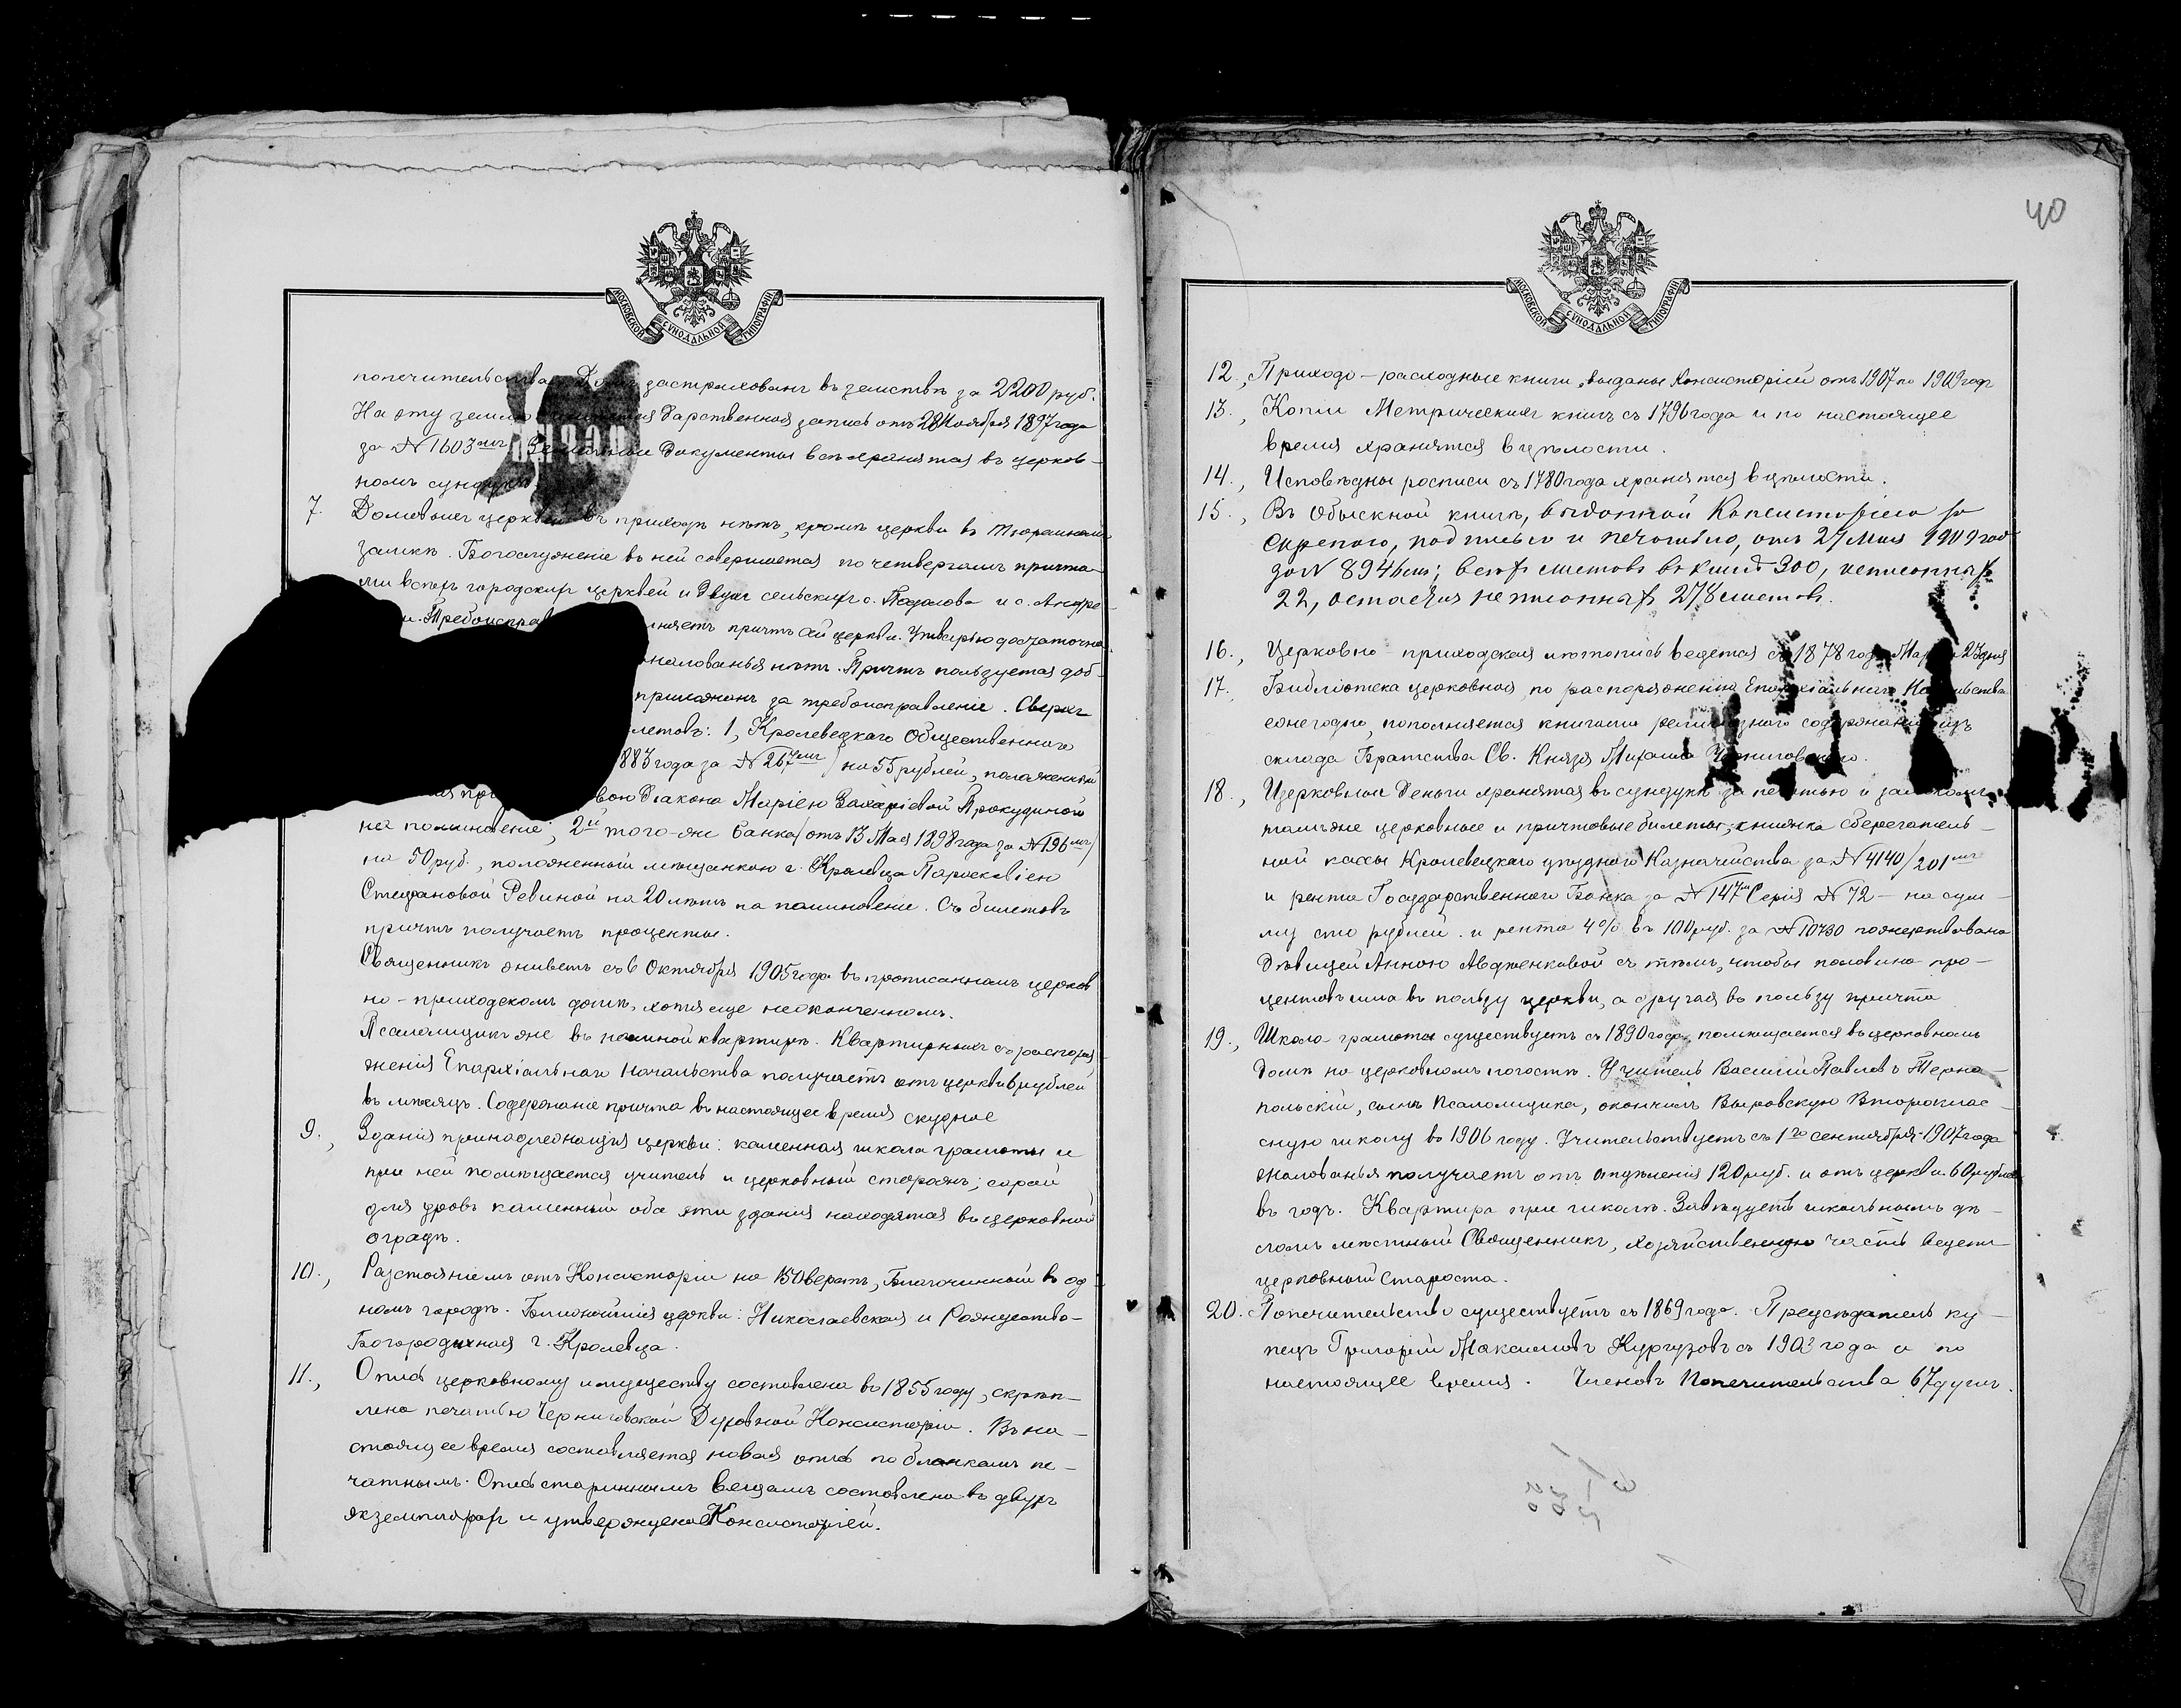 МОСКОВСКОЙ СѴНОДАЛЬНОЙ ТИПОГРАФІИ
попечительства. Домъ застрахованъ въ земствѣ за 2200 руб.
На эту землю дарственная запись отъ 28 Ноября 1897 года
за № 1603 документы всѣ хранятся въ церков-
номъ сундукѣ
7. Домовыхъ церквей въ приходѣ нѣтъ, кромѣ церкви въ Тюремномъ
замкѣ. Богослуженіе въ ней совершается по четвергамъ причта-
ми всѣхъ городскихъ церквей и двухъ сельскихъ с. Подолова и с. Андре-
и. Требоисправ няетъ причтъ сей церкви. Утварью достаточна
жалованья нѣтъ. Причтъ пользуется доб-
прихожанъ за требоисправленіе. Сверхъ
летовъ: 1, Кролевецкаго Общественнаго
883 года за № 267 мъ) на 55 рублей, положенный
вою Діакона Маріею Захаріевой Прокудиной
на поминовеніе; 2й того-же банка (отъ 13 Мая 1898 года за № 196 мъ)
на 50 руб., положенный мѣщанкою г. Кролевца Параскевіею
Стефановой Ревиной на 20 лѣтъ на поминовеніе. Съ билетовъ
причтъ получаетъ проценты.
Священникъ живетъ съ 6 Октября 1905 года въ прописанномъ церков
но-приходскомъ домѣ, хотя еще неоконченномъ.
Псаломщикъ же въ наемной квартирѣ. Квартирныхъ съ распоря-
женія Епархіальнаго Начальства получаетъ отъ церкви 6 рублей
въ мѣсяцъ. Содержаніе причта въ настоящее время скудное
9., Зданія принадлежащія церкви: каменная школа грамоты и
при ней помѣщается учитель и церковный сторожъ; сарай
для дровъ каменный оба эти зданія находятся въ церковной
оградѣ.
10., Разстояніемъ отъ Консисторіи на 150 верстъ, Благочинный въ од-
номъ городѣ. Ближайшія церкви: Николаевская и Рождество-
Богородичная г. Кролевца.
11., Опись церковному имуществу составлена въ 1855 году, скрѣп-
лена печатью Черниговской Духовной Консисторіи. Въ на-
стоящее время составляется новая опись по бланкамъ пе-
чатнымъ. Опись стариннымъ вещамъ составлена въ двухъ
экземплярахъ и утверждена Консисторіей.
40
МОСКОВСКОЙ СѴНОДАЛЬНОЙ ТИПОГРАФІИ
12., Приходо-расходные книги, выданы Консисторіей отъ 1907 по 1909 годъ
13., Копіи Метрическихъ книгъ съ 1796 года и по настоящее
время хранятся в цѣлости.
14., Исповѣдны росписи съ 1780 года хранятся в цѣлости.
15., Въ Обыскной книгѣ, выданной Консисторіею за
скрепою, подписью и печатью, отъ 27 Мая 1909 год
за № 8946 мъ; всѣхъ листовъ въ книгѣ 300, исписанныхъ
22, остается неписанныхъ 278 листовъ.
16., Церковно-приходская лѣтопись ведется съ 1878 года Мар 23 дня
17. Библіотека церковная, по распоряженію Епархіальнаго Начальства
ежегодно, пополняется книгами религіознаго содержанія изъ
склада Братства Св. Князя Михаила Черниговскаго.
18., Церковныя деньги хранятся въ сундукѣ за печатью и замкомъ
тамъ же церковные и причтовые билеты; книжка сберегатель-
ной кассы Кролевецкаго уѣзднаго Казначейства за № 4140/201 мъ
и рента Государственнаго Банка за № 147 м Серія № 72 - на сум-
му сто рублей. и рента 4% въ 100 руб. за № 10730 пожертвована
дѣвицей Анною Авдженковой съ тѣмъ, чтобы половина про-
центовъ шла въ пользу церкви, а другая въ пользу причта
19., Школа грамоты существуетъ съ 1890 года, помѣщается въ церковномъ
домѣ на церковномъ погостѣ. Учитель Василій Павловъ Терно-
польскій, сынъ псаломщика, окончилъ Выровскую Второклас-
сную школу въ 1906 году. Учительствуетъ съ 1го сентября 1907 года
жалованья получаетъ отъ отдѣленія 120 руб. и отъ церкви 60 рублей
въ годъ. Квартира при школѣ. Завѣдуетъ школьнымъ дѣ-
ломъ мѣстный Священникъ, хозяйственную часть ведетъ
церковный староста.
20. Попечительство существуетъ съ 1869 года. Предсѣдатель ку-
пецъ Григорій Максимовъ Кургузовъ съ 1903 года и по
настоящее время. Членовъ Попечительства 67 душъ.